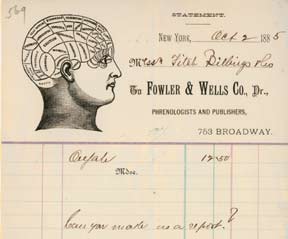 569
STATEMENT.
NEW YORK, Oct 2 1885
Messrs Fitch Billings & Co
To FOWLER & WELLS CO., Dr.,
PHRENOLOGISTS AND PUBLISHERS,
753 BROADWAY.
12.50
Mdse.
Can you make us a report?